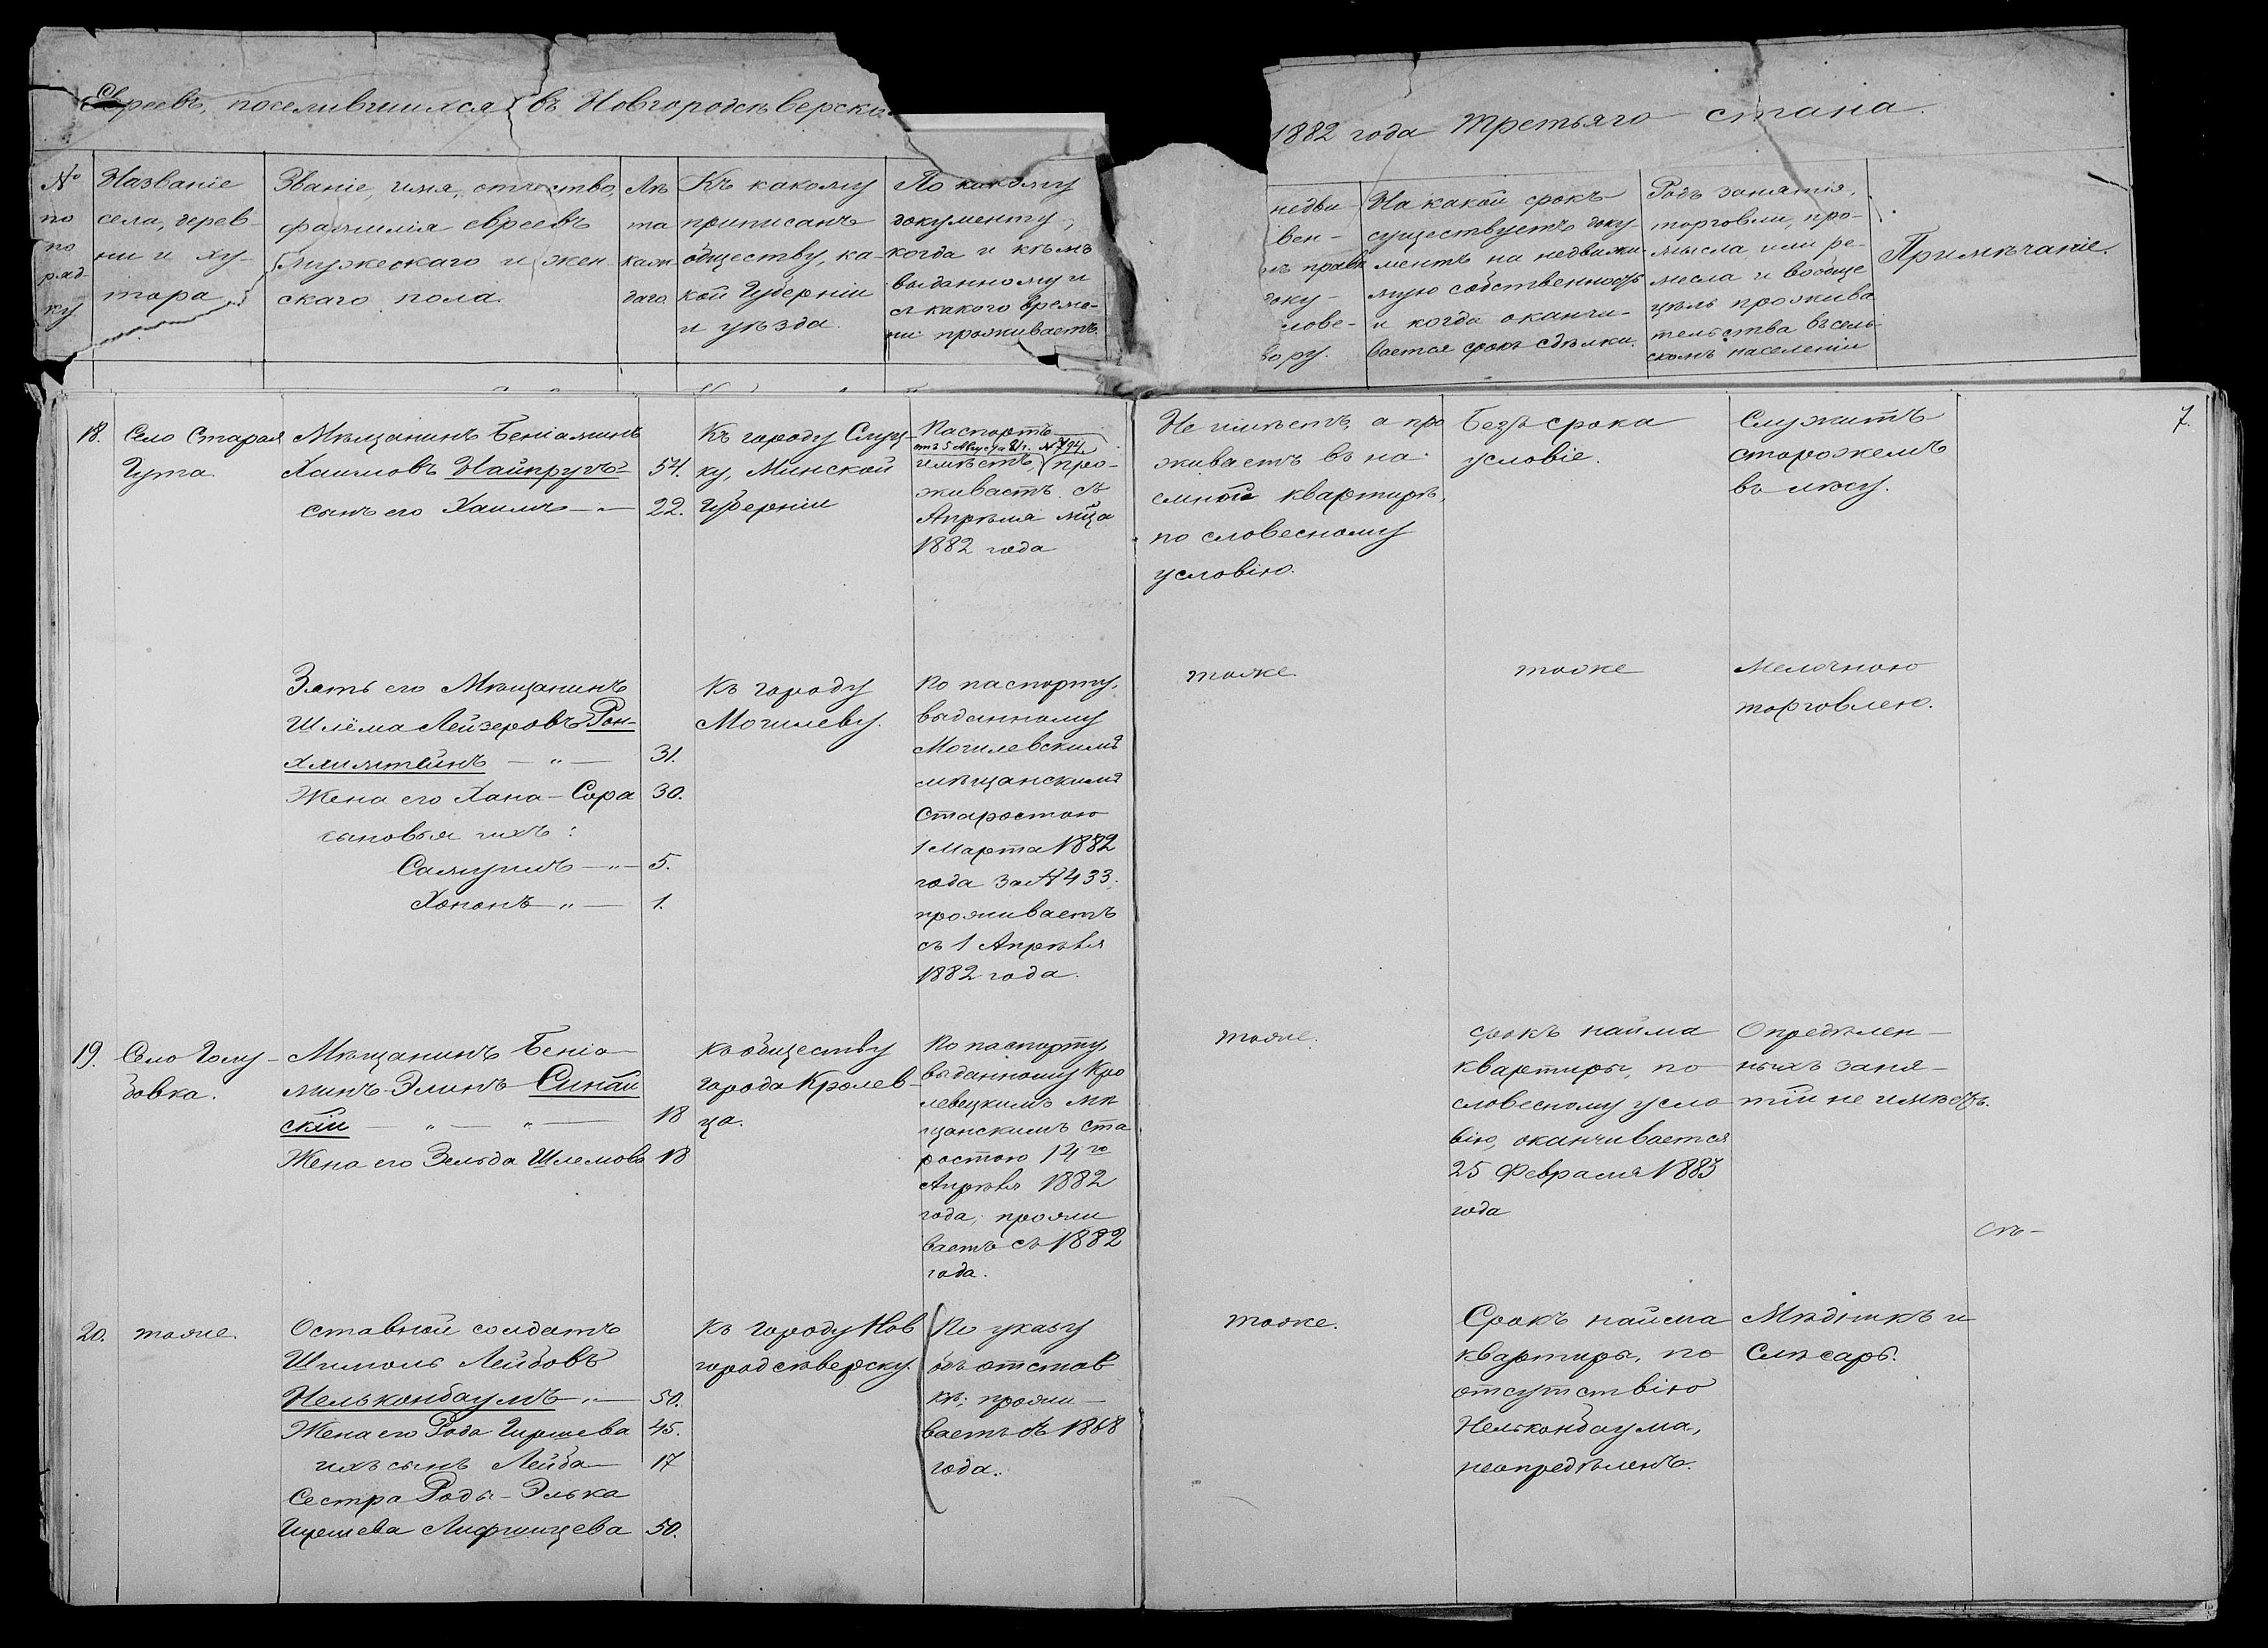 Евреевъ, поселившихся въ Новгородсѣверско
1882 года Третьяго стана.
№
по
по
ряд-
ку
Названіе
села, дерев-
ни и ху-
тора
Званіе, имя, отчество,
фамилія евреевъ
мужескаго и жен
скаго пола.
Лѣ
та
каж-
даго
Къ какому
приписанъ
обществу, ка-
кой Губерніи
и уѣзда.
По какому
документу,
когда и кѣмъ
выданному и
съ какого време-
ни проживаетъ.
недви-
вен-
правѣ
доку-
слове-
вору.
На какой срокъ
существуетъ доку-
ментъ на недвижи-
мую собственность
и когда оканчи-
вается срокъ сдѣлки.
Родъ занятія,
торговли, про-
мысла или ре-
месла и вообще
цѣль прожива
тельства въ сель-
скомъ населеніи
Примѣчаніе.
7.
18.
Село Старая
Гута
Мѣщанинъ Беніаминъ
Хаимовъ Найкругъ 54.
сынъ его Хаимъ — „ — 22.
Къ городу Слуц-
ку, Минской
Губерніи
Паспортъ
отъ 5 Августа 81 г. №794
имѣетъ, про-
живаетъ съ
Апрѣля мѣца
1882 года
Не имѣетъ, а про
живаетъ въ на-
емной квартирѣ,
по словесному
условію.
Безъ срока
условіе.
Служитъ
сторожемъ
въ лѣсу.
Зять его Мѣщанинъ
Шлёма Лейзеровъ Рон-
хлиштейнъ — „ — 31.
Жена его Хана-Сора 30.
сыновья ихъ:
Самуилъ — „ — 5.
Хононъ — „ — 1.
Къ городу
Могилеву.
По паспорту,
выданному
Могилевскимъ
мѣщанскимъ
Старостою
1 Марта 1882
года за №433.
проживаетъ
съ 1 Апрѣля
1882 года.
тоже.
тоже
Мелочною
торговлею.
19.
Село Голу-
бовка.
Мѣщанинъ Беніа-
минъ-Элинъ Синай
скій — „ — „ — 18
Жена его Зельда Шлемова 18
Къ обществу
города Кролев-
ца.
По паспорту
выданному Кро
левецкимъ мѣ
щанскимъ ста
ростою 14го
Апрѣля 1882
года, прожи
ваетъ съ 1882
года.
тоже.
срокъ найма
квартиры, по
словесному усло
вію, оканчивается
25 Февраля 1883
года
Опредѣлен-
ныхъ заня-
тій не имѣетъ.
20.
тоже.
Оставной солдатъ
Шимонъ Лейбовъ
Нельконбаумъ „ — 50.
Жена его Рода Гиршева 45.
ихъ сынъ Лейба — 17
Сестра Роды-Элька
Гиршева Лифшицева 50.
Къ городу Нов
городсѣверску.
По указу
объ отстав
кѣ; прожи-
ваетъ съ 1868
года.
тоже.
Срокъ найма
квартиры, по
отсутствію
Нельконбаума,
неопредѣленъ.
Мѣдникъ и
Слѣсарь.